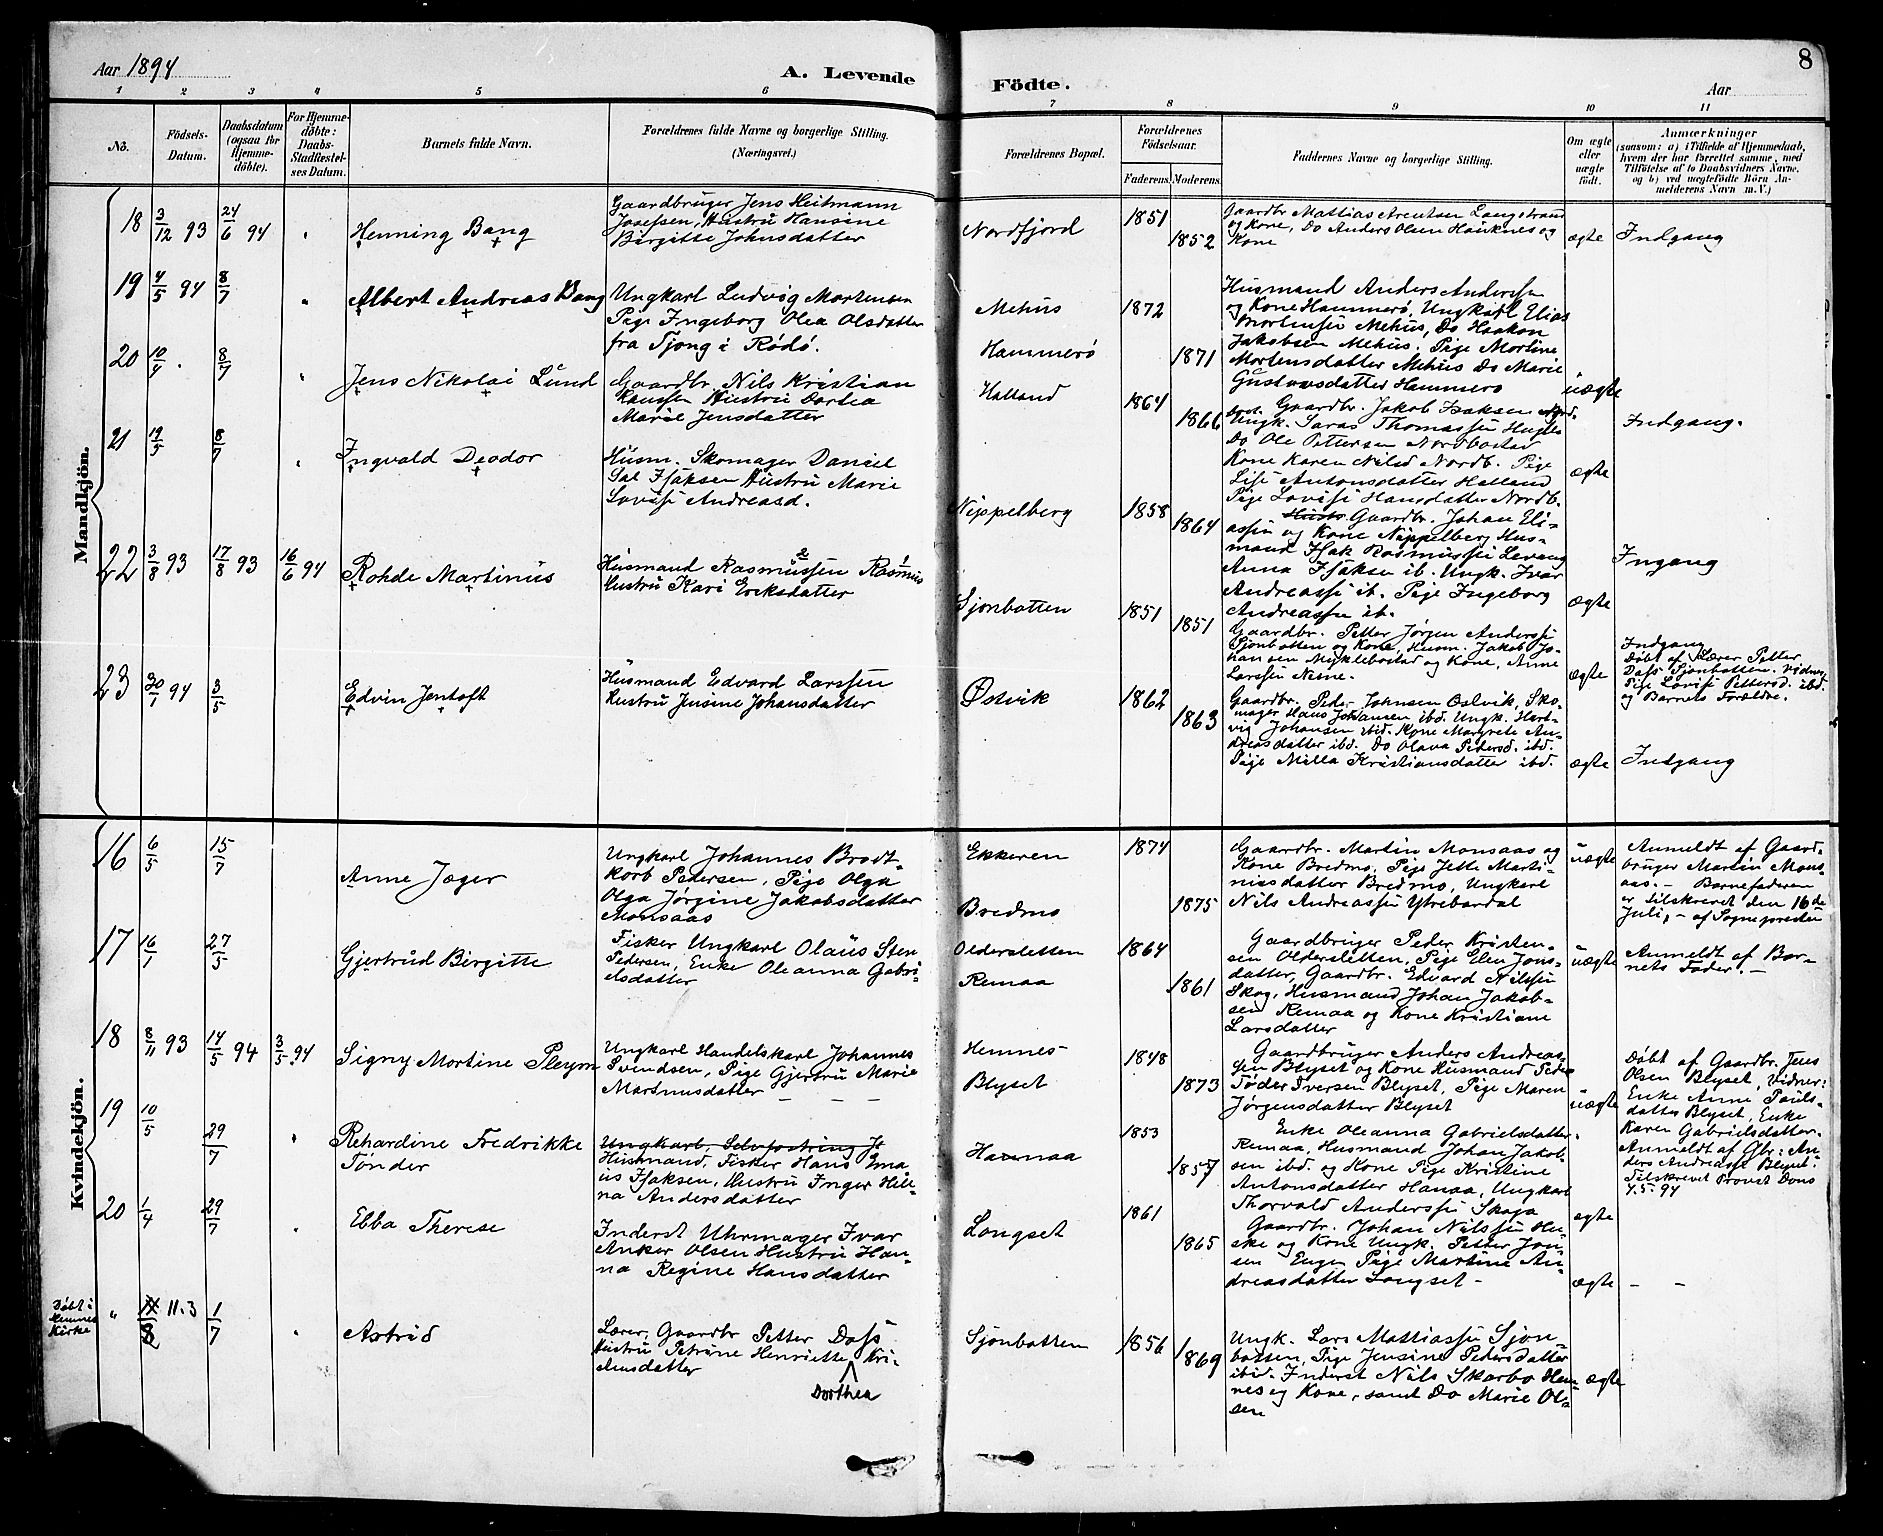 Aar 1894
A. Levende
Födte.
Aar
8
1 2 3 4 5 6 7 8 9 10 11
No.
Födsels-
Datum.
Daabsdatum
(ogsaa for
Hjemme-
döbte).
For Hjemme-
döbte:
Daabs-
Stadfæstel-
ses Datum.
Barnets fulde Navn.
Forældrenes fulde Navne og borgerlige Stilling.
(Næringsvei.)
Forældrenes Bopæl.
Forældrenes
Födselsaar.
Faderens. Moderens.
Faddernes Navne og borgerlige Stilling.
Om ægte
eller
uægte
födt.
Anmærkninger
(saasom: a) i Tilfælde af Hjemmedaab,
hvem der har forrettet samme, med
Tilföielse af to Daabsvidners Navne.
og b) ved uægtefödte Börn An-
melderens Navn m. V.)
Mandkjön.
18 3/12 93 24/6 94 "
Henning Bang
Gaardbruger Jens Heitmann
Josefsen, Hustru Hansine
Birgitte Johnsdatter
Nordfjord
1851
1852
Gaardbr Mattias Arentsen Langstrand
og Kone, Do Anders Olsen Hauknes og
Kone
ægte
Indgang
19 4/5 94 8/7 "
Albert Andreas Bang
Ungkarl Ludvig Mortensen
Pige Ingeborg Olea Olsdatter
fra Tjong i Rødø.
Mehus
Hammerø
1872
1871
Husmand Anders Anderssen
og Kone Hammerø, Ungkarl Elias
Mortensen Mehus, Do Haakon
Jakobsen Mehus. Pige Mortine
Mortensdatter Mehus Do Marie
Gustavsdatter Hammerø
uægte
20 10/4 . 8/7 "
Jens Nikolai Lund
Gaardbr. Nils Kristian
Hanssen Hustru Dortea
Marie Jensdatter
Halland
1864
1866
Gaardbr. Jakob Isaksen Nord.
Ungk. Saras Thomassen
Do Ole Pettersen Nordbostad
Kone Karen Nilsd Nordb. Pige
Lise Antonsdatter Halland
Pige Lovise Hansdatter Nordb.
ægte
Indgang.
21 19/5 8/7 "
Ingvald Deodor
Husm. Skomager Daniel
Sal Isaksen Hustru Marie
Lovise Andreasd.
Nippelberg
1858
1864
Gaardbr. Johan Eli-
assen og Kone Nippelberg Hus-
mand Isak Rasmussen Levang
Anna Isaksen ib. Ungk. Ivar
Andreassen ib. Pige Ingeborg
Andreassen ib.
ægte
Ingang
22 3/8 93 17/8 93 16/6 94
Rohde Martinus
Husmand Rasmussen 2 Rasmus 1
Hustru Kari Eriksdatter
Sjonbotten
1851
1851
Gaardbr. Petter Jørgen Anderssen
Sjonbotten og Kone, Husm. Jakob Jo-
hansen Myklebostad og Kone, Anne
Larssen Nesne.
ægte
Indgang
Døbt af Lærer Petter
Dass Sjonbotten. Vidner
Pige Lovise Pettersd. ibd.
og Barnets Forældre.
23 30/1 94 3/5
Edvin Jentoft
Husmand Edvard Larssen
Hustru Jensine Johansdatter
Østvik
1862
1863
Gaardbr. Peder Johnsen Østvik, Sko-
mager Hans Johansen ibd. Ungk. Hart-
vig Johansen ibid. Kone Margrete An-
dreasdatter ibd. Do Olava Pedersd. ibd.
Pige Milla Kristiansdatter ibd.
ægte
Indgang
Kvindekjön.
16 6/5 15/7
Anne Jæger
Ungkarl Johannes Brodt-
korb Pedersen, Pige Olga
Olga Jørgine Jakobsdatter
Monsaas
Ekkeren
Bredmo
1874
1875
Gaardbr. Martin Monsaas og
Kone Bredmo, Pige Jette Marti-
niusdatter Bredmo, Ungkarl
Nils Andreassen Ytrebardal
uægte
Anmeldt af Gaard-
bruger Martin Mons-
aas. — Barnefaderen
er tilskrevet den 16de
Juli, — af Sognepresten
17 16/1 27/5
Gjertrud Birgitte
Fisker Ungkarl Olaus Sten
Pedersen, Enke Oleanna Gabri-
elsdatter
Oldersletten
Remaa
1864
1861
Gaardbruger Peder Kristen-
sen Oldersletten, Pige Elen Jons-
datter, Gaardbr. Edvard Nilssen
Skog, Husmand Johan Jakob-
sen Remaa og Kone Kristiane
Larsdatter
uægte
Anmeldt af Bar-
nets Fader. —
18 8/11 93 14/5 94 3/5 94
Signy Mortine Pleym
Ungkarl Handelskarl Johannes
Svendsen, Pige Gjertru Marie
Martinusdatter — — —
Hemnes—
Blyset
1848
1873
Gaardbruger Anders Andreas-
sen Blyset og Kone Husmand Peder
Tøder Iversen Blyset, Pige Maren
Jørgensdatter Blyset
uægte
Døbt af Gaardbr. Jens
Olsen Blyset, Vidner:
Enke Anne Pauls-
datter Blyset, Enke
Karen Gabrielsdatter.
Anmeldt af Gbr: An-
ders Andreassen Blyset.
Tilskrevet Provst Dons
4.5.94
19 10/5 29/7 "
Rehardine Fredrikke
Tønder
Ungkarl, Selvfostring J
Husmand, Fisker Hans Ema-
us Isaksen, Hustru Inger Hele-
na Andersdatter
Hanaa
1853
1857
Enke Oleanna Gabrielsdatter
Remaa, Husmand Johan Jakob-
sen ibd. og Kone Pige Kristine
Antonsdatter Hanaa, Ungkarl
Thorvald Anderssen Skoga
ægte
20 1/4 29/7 "
Ebba Therese
Inderst Uhrmager Ivar
Anker Olsen Hustru Han-
na Regine Hansdatter
Longset
1861
1865
Gaardbr. Johan Nilssen Hu-
ske og Kone Ungk. Petter Jon-
sen Engen Pige Martine An-
dreasdatter Longset —
ægte — —
Døbt i
Hemnes
Kirke
" 11.3 1/7 "
Astrid
Lærer, Gaardbr Petter Dass
Hustru Petrine Henriette Kri-
stensdatter
Dorthea
Sjonbotten
1856
1869
Ungk. Lars Mattiassen Sjon-
botten, Pige Jensine Pedersdatter
ibid. Inderst Nils Skarbo Hem-
nes og Kone, samt Do Marie Ol-
sen
ægte